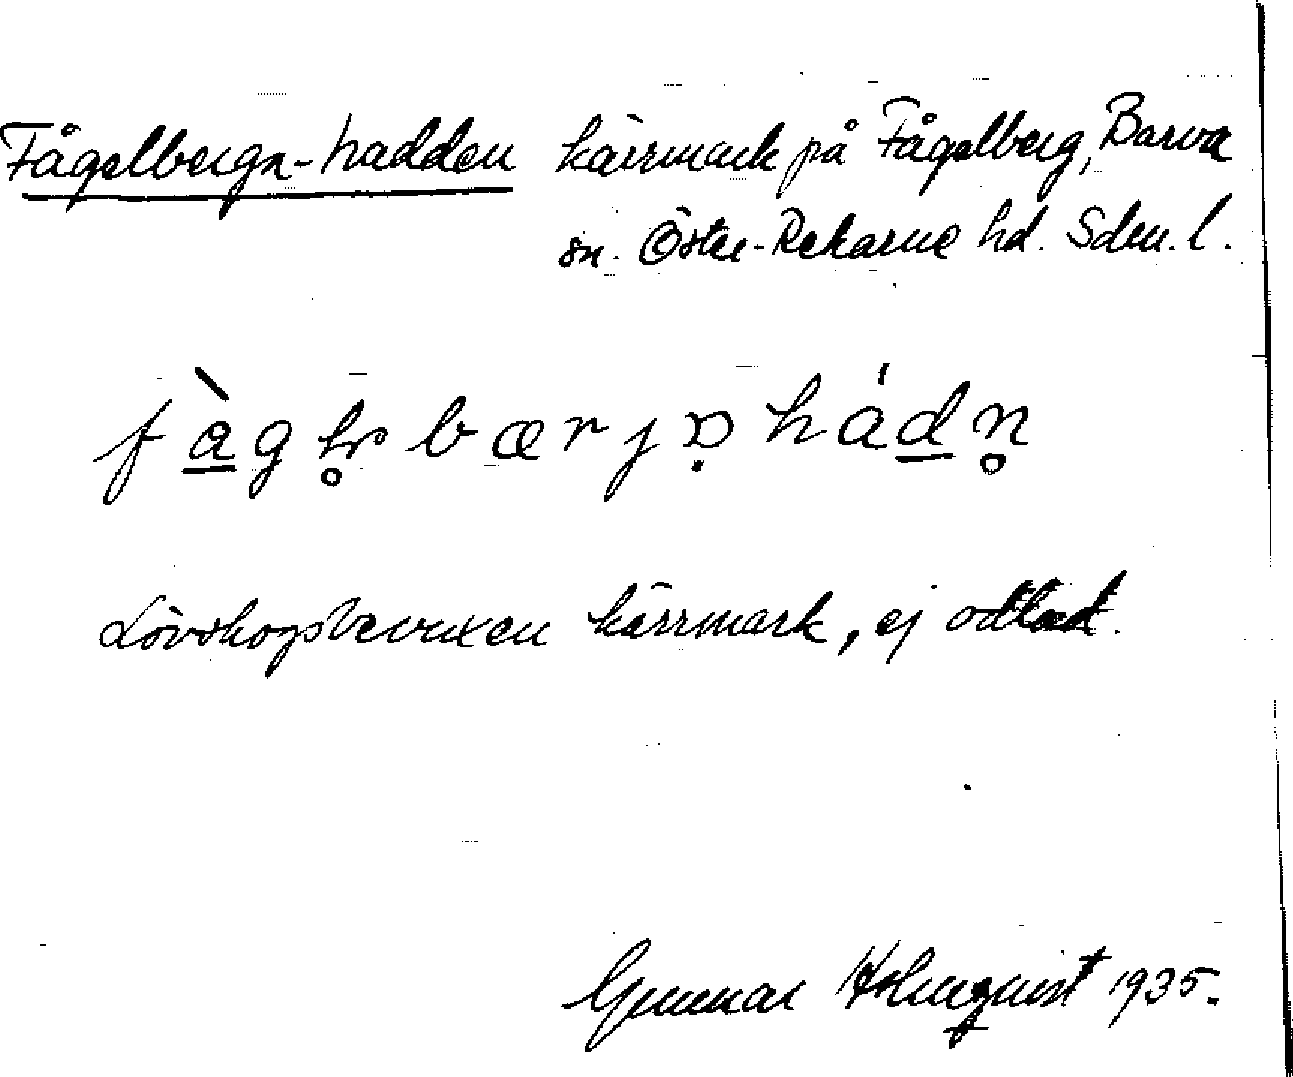 Fågelbergs-hadden kärrmark på Fågelberg, Barva
sn. Öster-Rekarne hd. Sdm. l.
Lövskogsbevuxen kärrmark, ej odlad.
Gunnar Holmquist 1935.